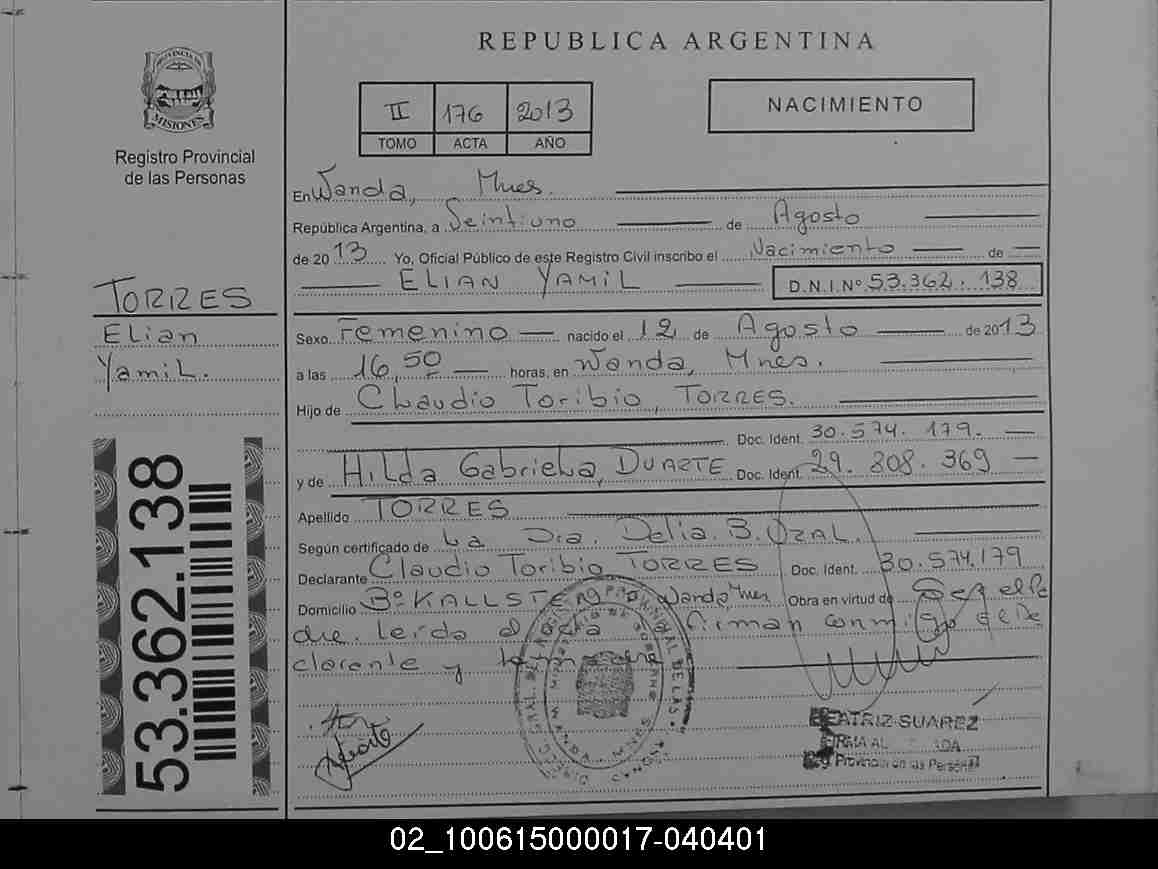 REPUBLICA ARGENTINA
PROVINCIA DE
MISIONES
Registro Provincial
de las Personas
II 176 2013
TOMO ACTA AÑO
NACIMIENTO
En Wanda, Mnes.
República Argentina, a Veintiuno de Agosto
de 2013 Yo, Oficial Público de este Registro Civil inscribo el Nacimiento de
ELIAN YAMIL D.N.I.Nº 53.362.138
TORRES
Elian
Yamil.
Sexo Femenino nacido el 12 de Agosto de 2013
a las 16,50 horas, en Wanda, Mnes.
Hijo de Claudio Toribio, TORRES.
Doc. Ident. 30.574.179.
y de Hilda Gabriela, DUARTE Doc. Ident. 29.808.369
Apellido TORRES
Según certificado de La Dra. Delia. B. OZAL.
Declarante Claudio Toribio TORRES Doc. Ident. 30.574.179
Domicilio Bº KALLSTEN Wanda, Mnes Obra en virtud de Ser el Pa
dre. leída el acta firman conmigo el De
clarante y la madre
53.362.138
WANDA MNES
BEATRIZ SUAREZ
Provincial de las Personas
02_100615000017-040401